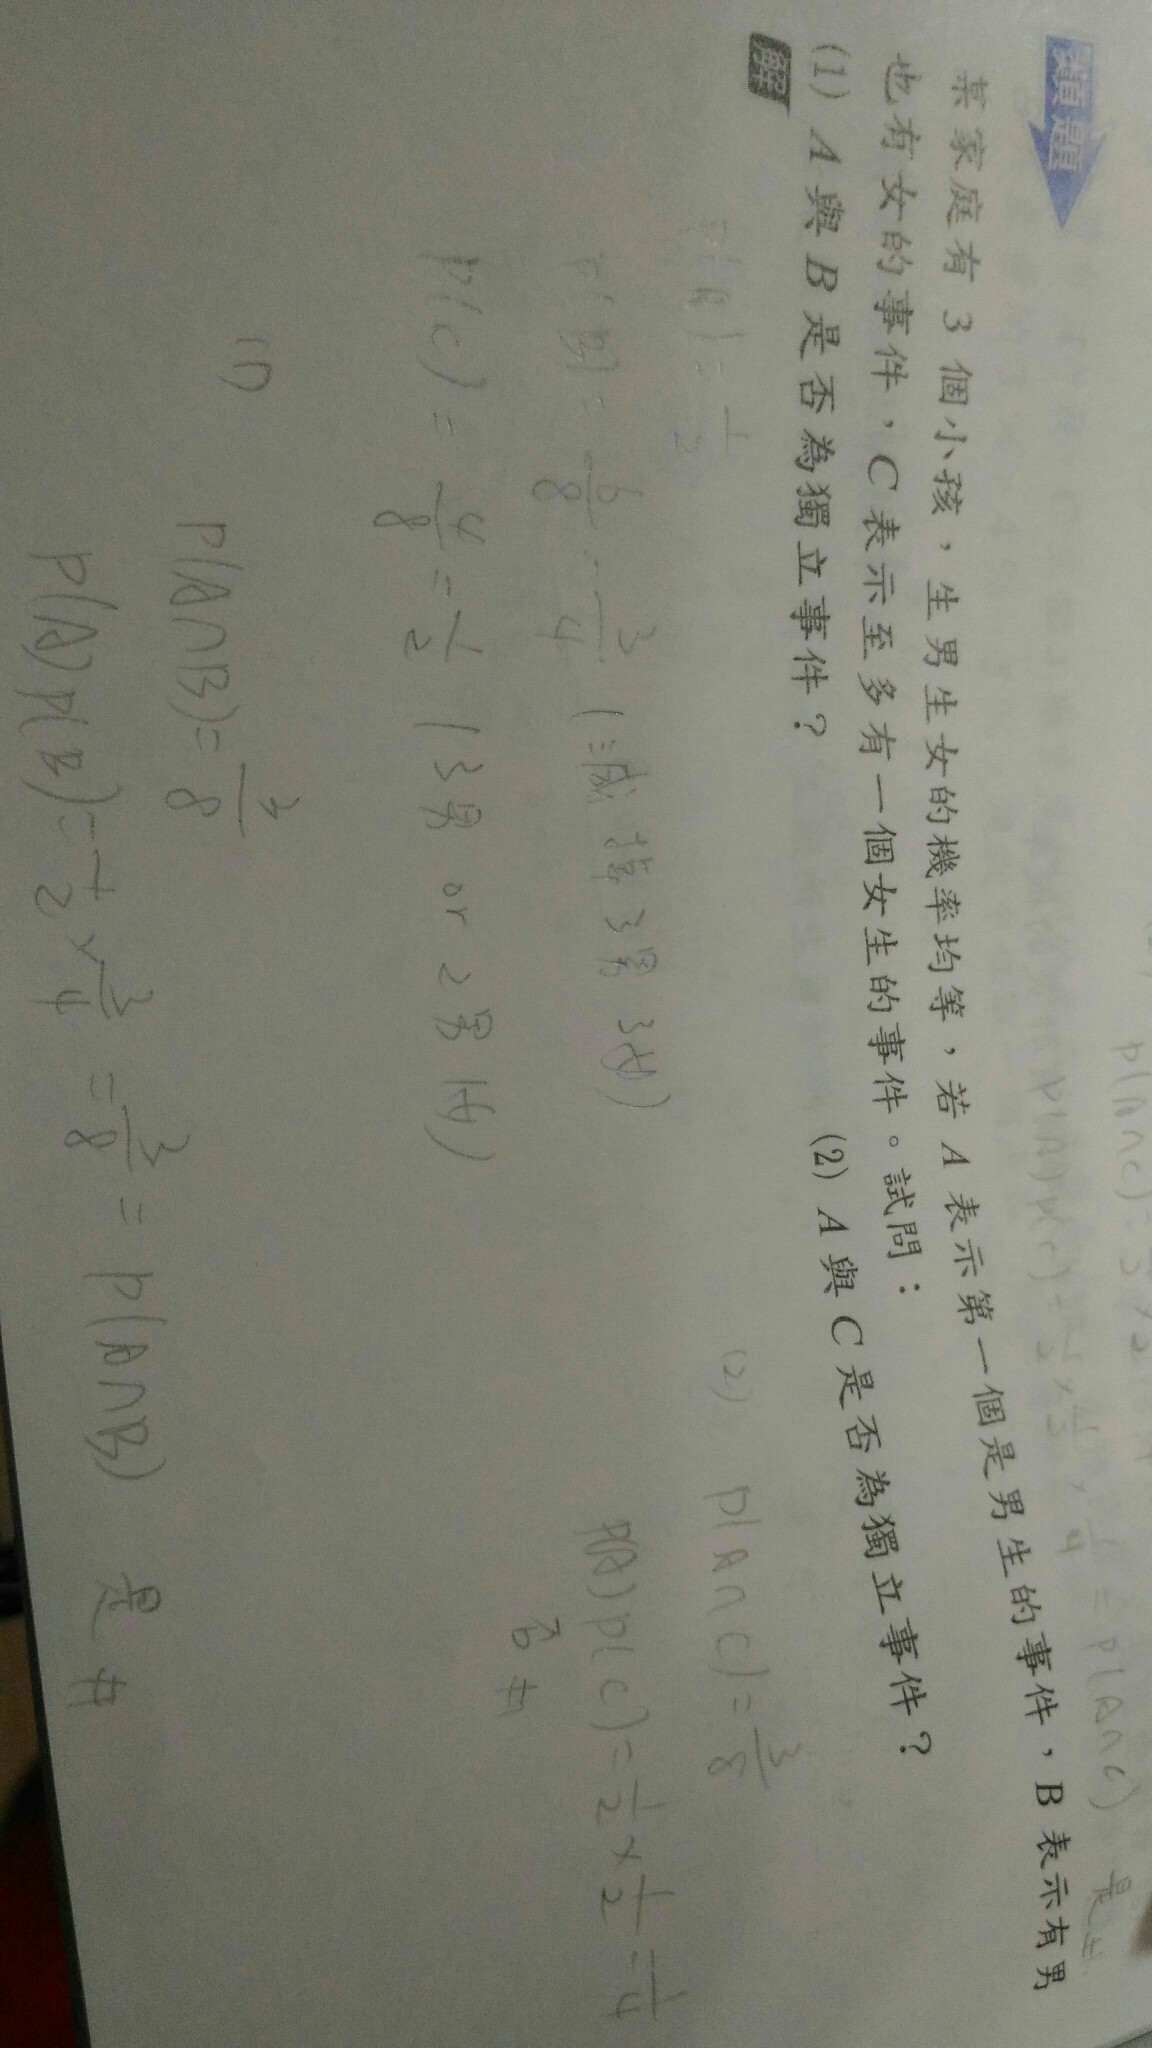 類題
某家庭有 3 個小孩，生男生女的機率均等，若 A 表示第一個是男生的事件，B 表示有男
也有女的事件，C 表示至多有一個女生的事件。試問：
(1) A 與 B 是否為獨立事件？ (2) A 與 C 是否為獨立事件？
解
P(A)=1/2
P(B)=6/8=3/4 (減掉3男3女)
P(C)=4/8=1/2 (3男 or 2男1女)
(1) P(A∩B)=3/8
P(A)P(B)=1/2×3/4=3/8=P(A∩B) 是#
(2) P(A∩C)=3/8
P(A)P(C)=1/2×1/2=1/4
否#